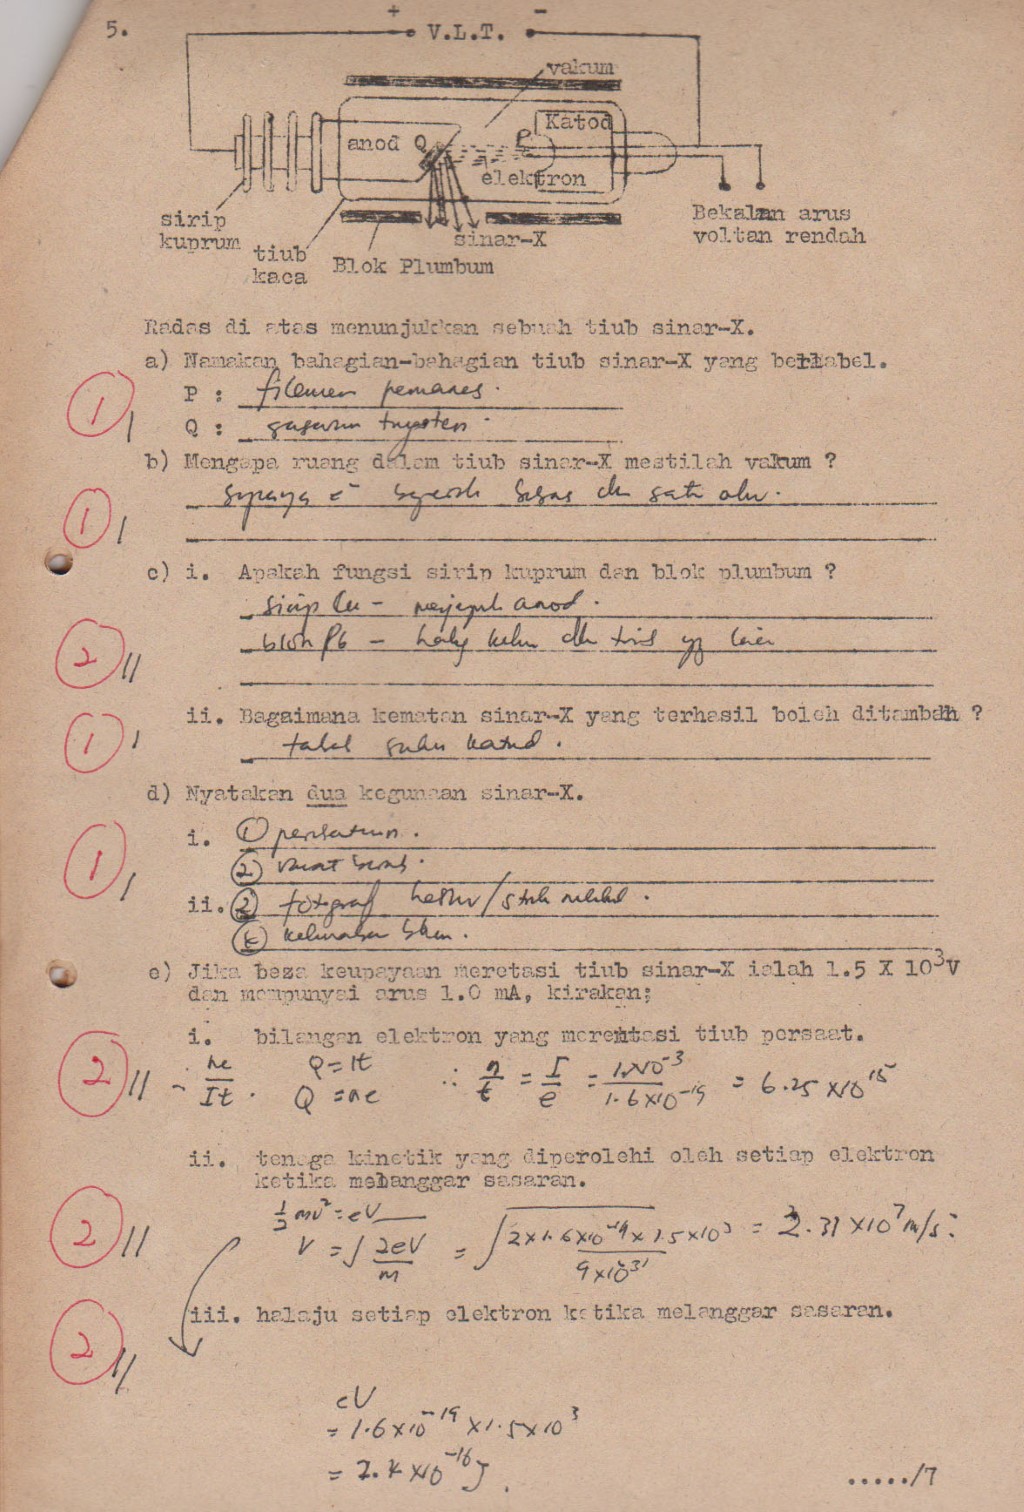 5.
+ -
V.L.T.
vakum
Katod
anod Q
P
elektron
sirip
kuprum
tiub
kaca
Blok Plumbum
sinar-X
Bekalan arus
voltan rendah
Radas di atas menunjukkan sebuah tiub sinar-X.
a) Namakan bahagian-bahagian tiub sinar-X yang berlabel.
1
P : filamen pemanas.
Q : sasaran tungsten
b) Mengapa ruang dalam tiub sinar-X mestilah vakum ?
1
supaya e⁻ bergerak bebas dlm satu
c) i. Apakah fungsi sirip kuprum dan blok plumbum ?
sirip Cu - menyejuk anod.
2
blok Pb -
ii. Bagaimana kematan sinar-X yang terhasil boleh ditambah ?
1
suhu katod.
d) Nyatakan dua kegunaan sinar-X.
i. ①
1
②
ii. ②
e) Jika beza keupayaan meretasi tiub sinar-X ialah 1.5 X 10³V
dan mempunyai arus 1.0 mA, kirakan;
i. bilangan elektron yang merentasi tiub persaat.
2
ne/It . Q = It ∴ n/t = I/e = 1×10⁻³/1.6×10⁻¹⁹ = 6.25 ×10¹⁵
Q = ne
ii. tenaga kinetik yang diperolehi oleh setiap elektron
ketika melanggar sasaran.
½mv² = eV
2
V = √2eV/m = √2×1.6×10⁻¹⁹×1.5×10³/9×10⁻³¹ = 2.31 ×10⁷ m/s
iii. halaju setiap elektron ketika melanggar sasaran.
2
eV
= 1.6×10⁻¹⁹ ×1.5×10³
= 2.4 ×10⁻¹⁶ J.
...../7